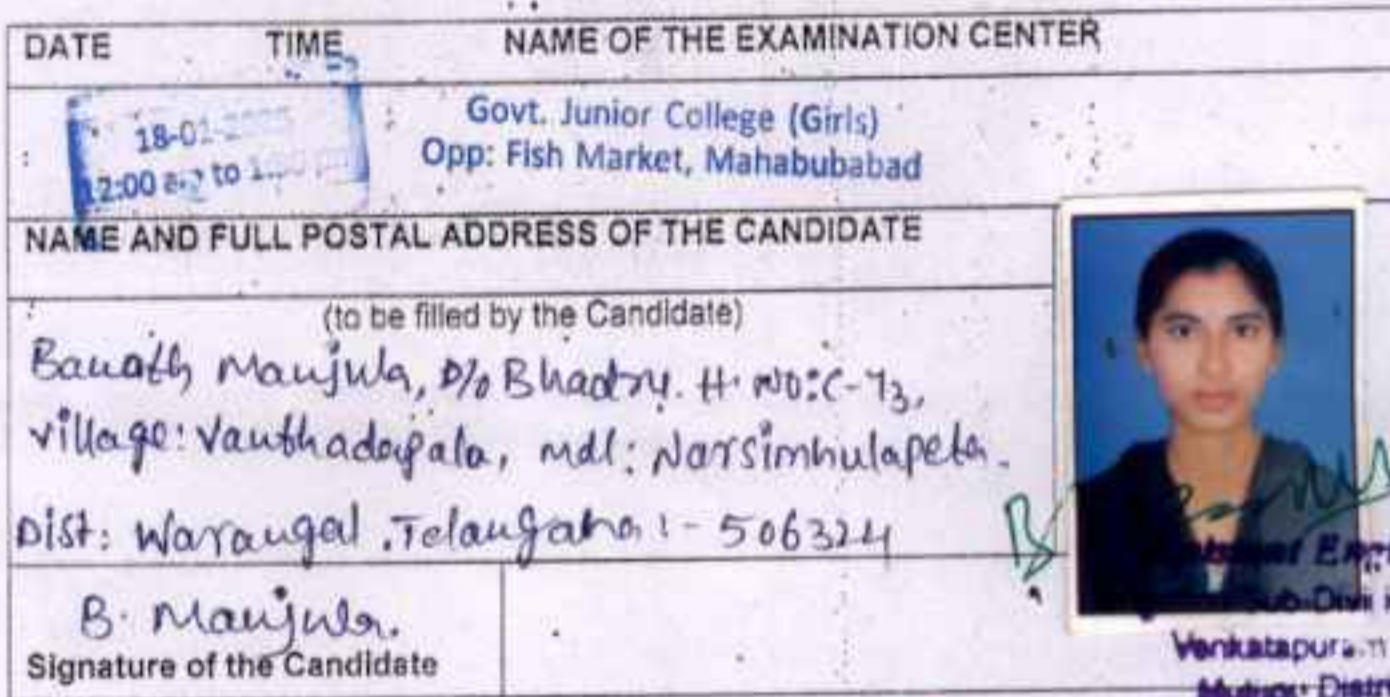 DATE TIME NAME OF THE EXAMINATION CENTER
18-01-
12:00 to
Govt. Junior College (Girls)
Opp: Fish Market, Mahabubabad
NAME AND FULL POSTAL ADDRESS OF THE CANDIDATE
(to be filled by the Candidate)
Banath Manjula, D/o Bhadru. H. NO: C-73,
village: Vanthadapala, mdl: Narsimhulapeta.
Dist: Warangal. Telangana :- 506324
B. Manjula.
Signature of the Candidate
Sub-Divi
Venkatapuram